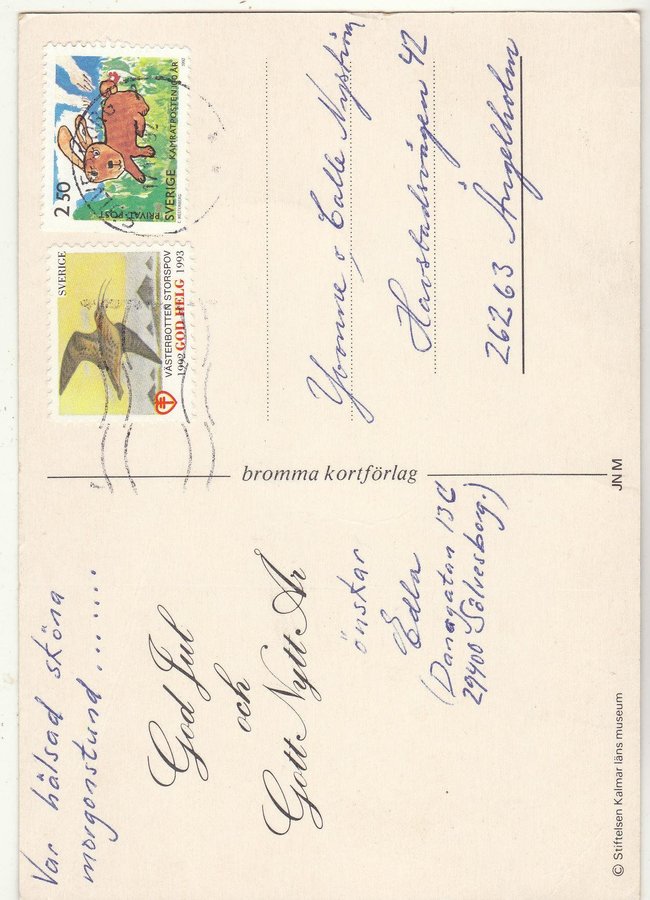 Var hälsad sköna
morgonstund......
God Jul
och
Gott Nytt År
önskar
Edla
(Danagatan 13C
29400 Sölvesborg.)
© Stiftelsen Kalmar läns museum
bromma kortförlag
JN M
SVERIGE
VÄSTERBOTTEN STORSPOV
1992 GOD HELG 1993
2 50
PRIVAT-POST
SVERIGE KAMRATPOSTEN 100 ÅR
1992
Yvonne o Calle Nyström
Havsbadsvägen 42
26263 Ängelholm